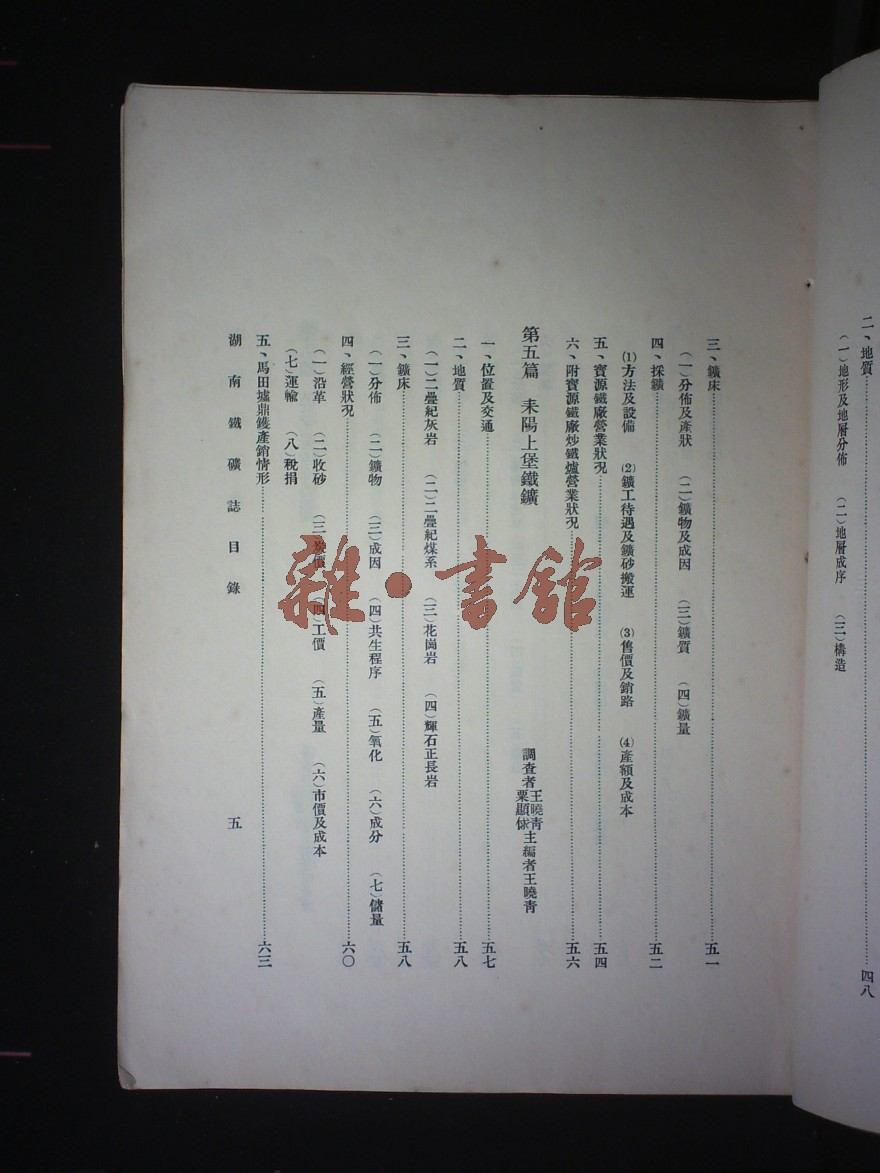 二、地質……四八
（一）地形及地層分佈　（二）地層成序　（三）構造
三、鑛床……五一
（一）分佈及產狀　（二）鑛物及成因　（三）鑛質　（四）鑛量
四、採鑛……五二
(1)方法及設備　(2)鑛工待遇及鑛砂搬運　(3)售價及銷路　(4)產額及成本
五、寶源鐵廠營業狀況……五四
六、附寶源鐵廠炒鐵爐營業狀況……五六
第五篇　耒陽上堡鐵鑛
調查者王曉青 粟顯倸 主編者王曉青
一、位置及交通……五七
二、地質……五八
（一）二疊紀灰岩　（二）二疊紀煤系　（三）花崗岩　（四）輝石正長岩
三、鑛床……五八
（一）分佈　（二）鑛物　（三）成因　（四）共生程序　（五）氧化　（六）成分　（七）儲量
四、經營狀況……六〇
（一）沿革　（二）收砂　（三）炭價　（四）工價　（五）產量　（六）市價及成本
（七）運輸　（八）稅捐
五、馬田墟鼎鑊產銷情形……六三
湖南鐵礦誌目錄　五
雜·書館